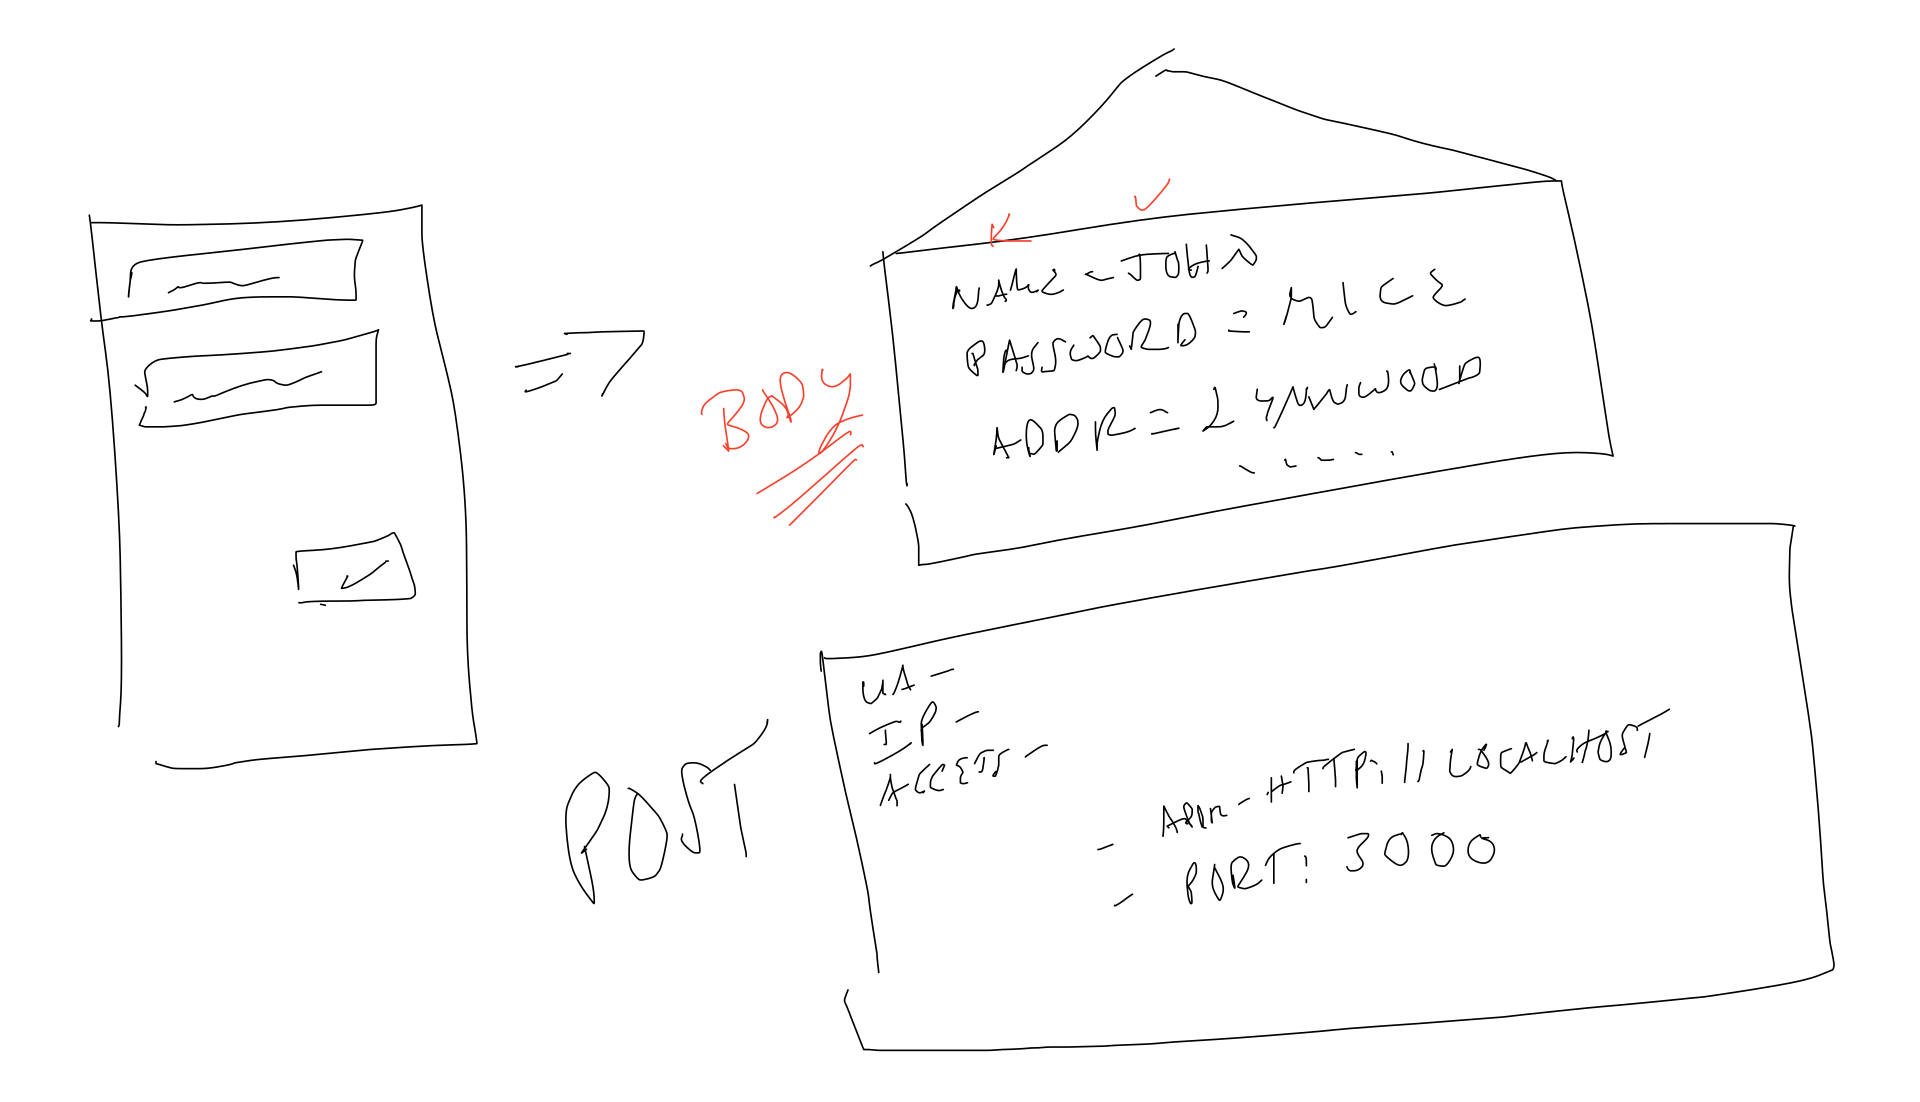 NAME - JOHN
PASSWORD = MICE
ADDR = LYNNWOOD
.....
BODY
UA -
IP -
ACCESS -
- ADDR - HTTP://LOCALHOST
- PORT: 3000
POST